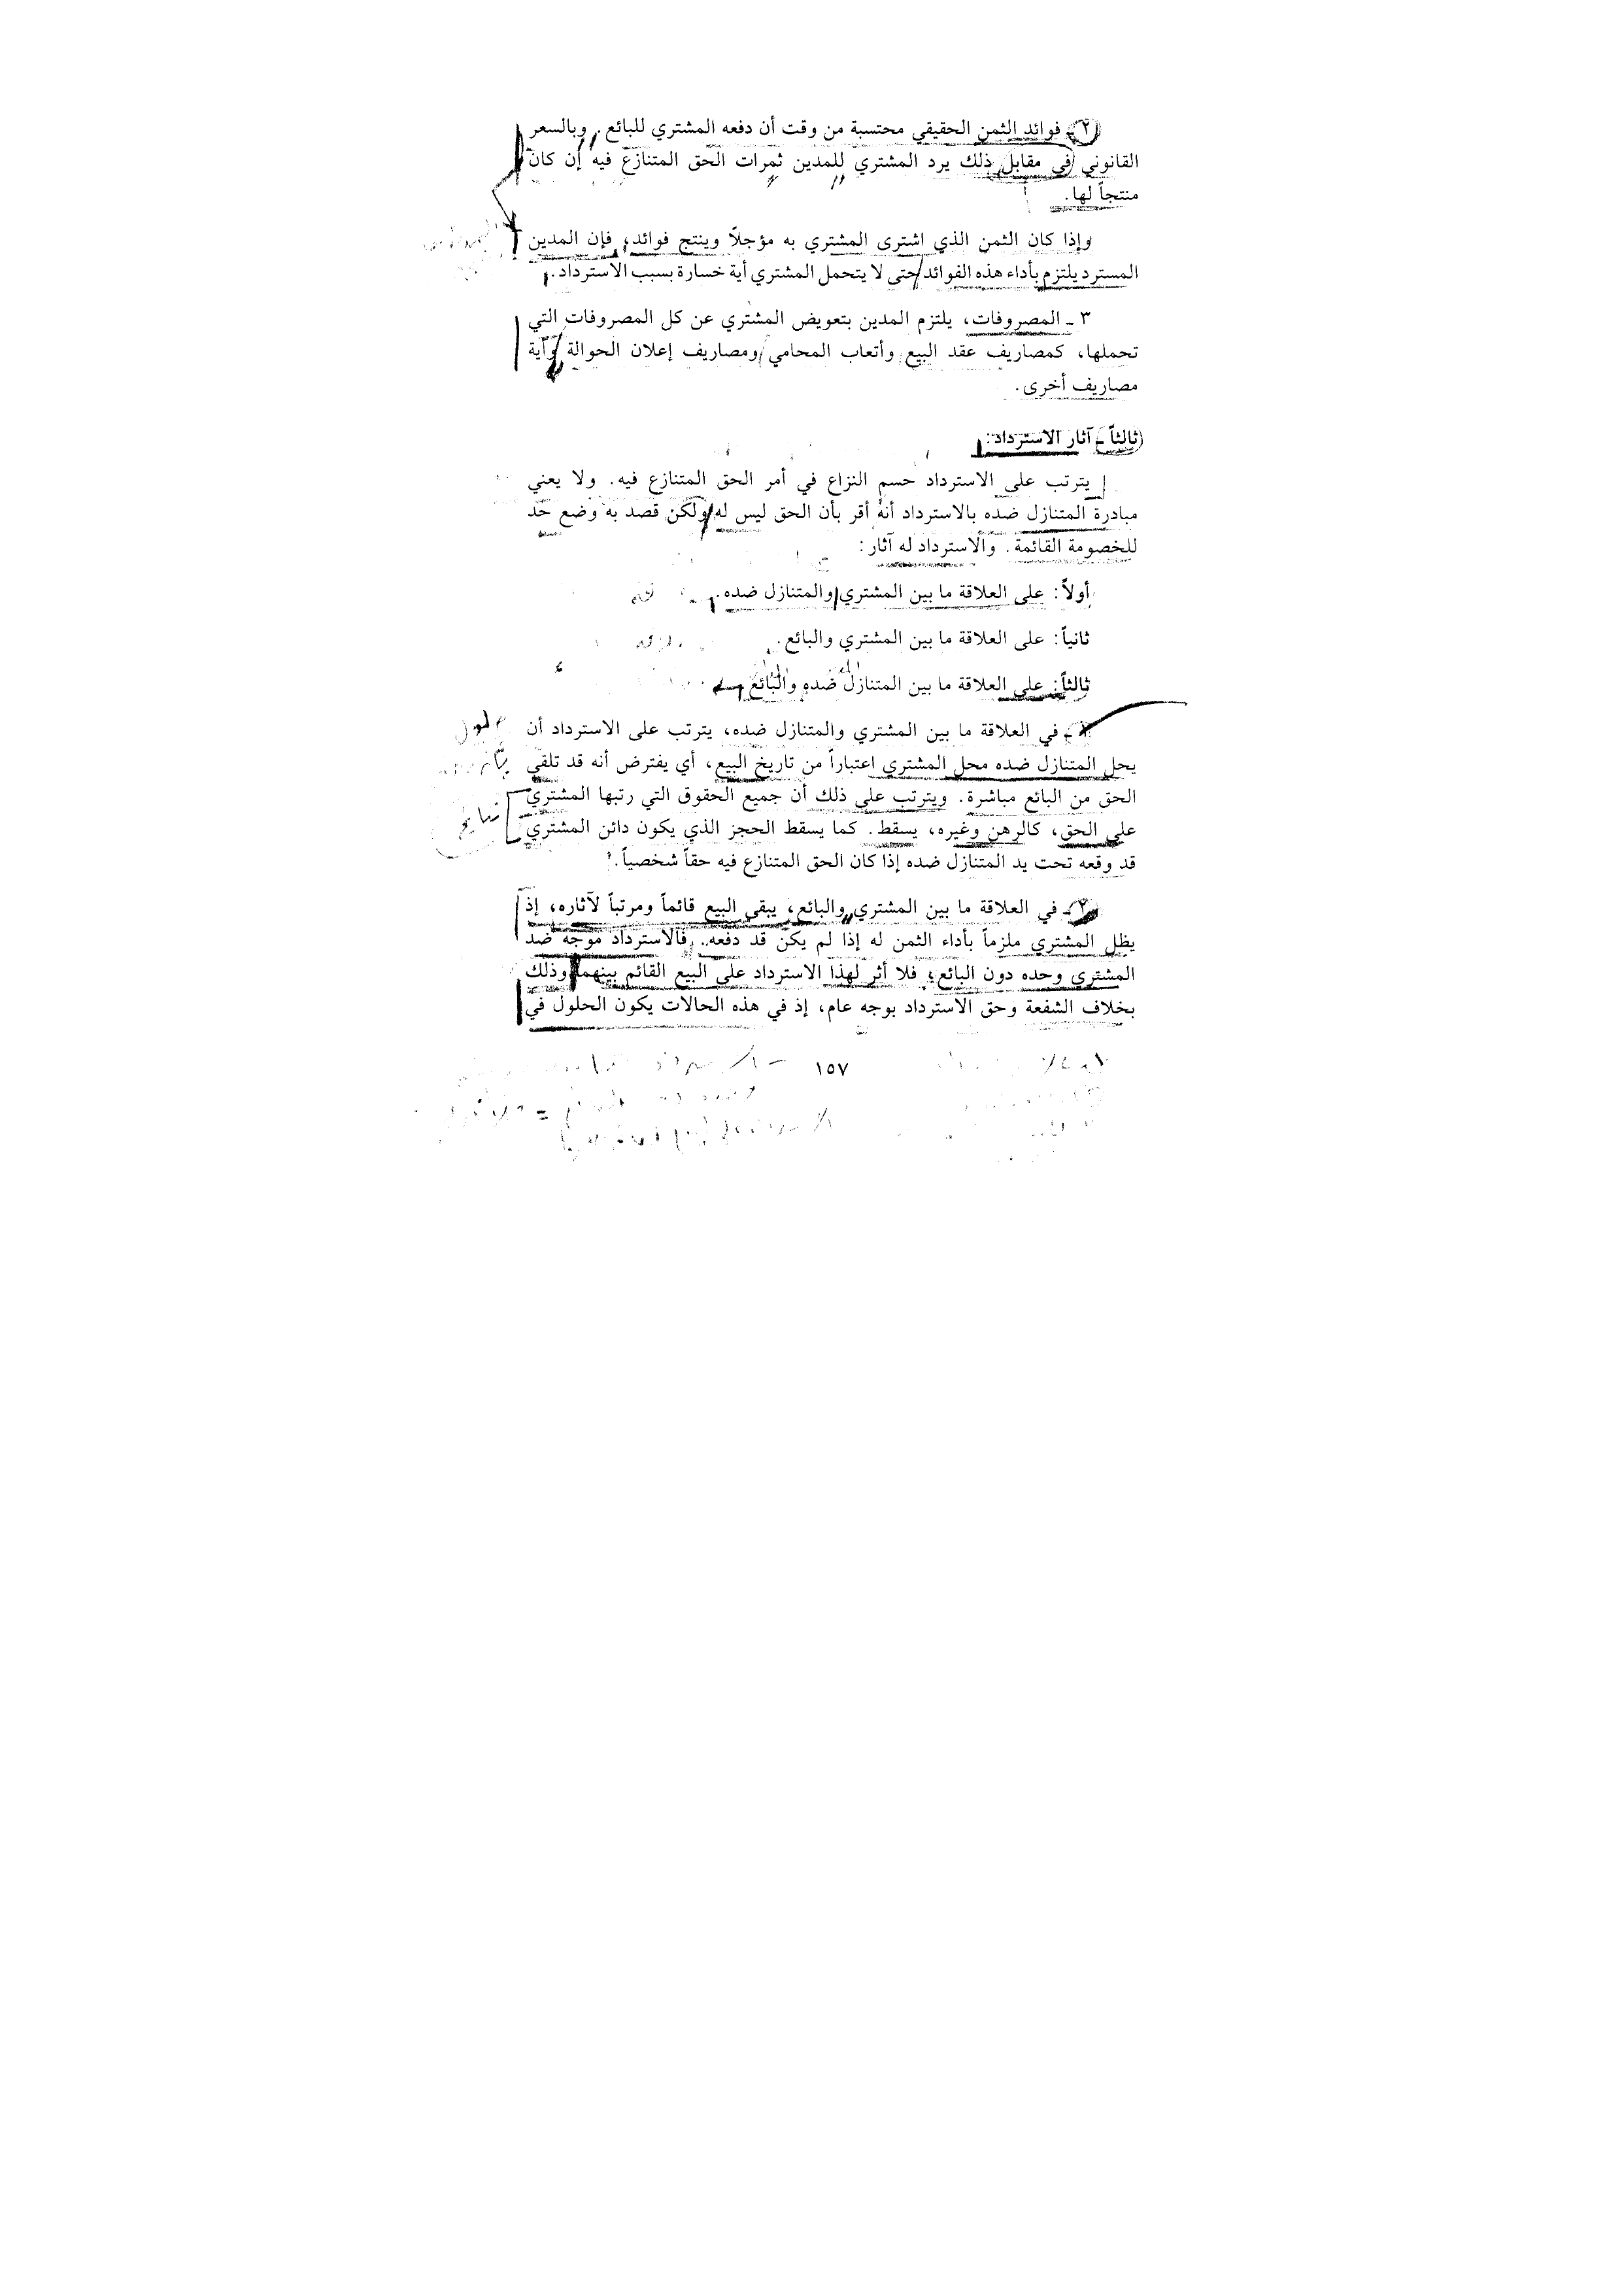 ٢ ـ فوائد الثمن الحقيقي محتسبة من وقت أن دفعه المشتري للبائع. وبالسعر
القانوني في مقابل ذلك يرد المشتري للمدين ثمرات الحق المتنازع فيه إن كان
منتجاً لها.
وإذا كان الثمن الذي اشترى المشتري به مؤجلاً وينتج فوائد، فإن المدين
المسترد يلتزم بأداء هذه الفوائد حتى لا يتحمل المشتري أية خسارة بسبب الاسترداد.
٣ ـ المصروفات، يلتزم المدين بتعويض المشتري عن كل المصروفات التي
تحملها، كمصاريف عقد البيع وأتعاب المحامي ومصاريف إعلان الحوالة وأية
مصاريف أخرى.
ثالثاً ـ آثار الاسترداد:
يترتب على الاسترداد حسم النزاع في أمر الحق المتنازع فيه. ولا يعني
مبادرة المتنازل ضده بالاسترداد أنه أقر بأن الحق ليس له ولكن قصد به وضع حد
للخصومة القائمة. والاسترداد له آثار:
أولاً: على العلاقة ما بين المشتري والمتنازل ضده.
ثانياً: على العلاقة ما بين المشتري والبائع.
ثالثاً: على العلاقة ما بين المتنازل ضده والبائع
١ ـ في العلاقة ما بين المشتري والمتنازل ضده، يترتب على الاسترداد أن
يحل المتنازل ضده محل المشتري اعتباراً من تاريخ البيع، أي يفترض أنه قد تلقى
الحق من البائع مباشرة. ويترتب على ذلك أن جميع الحقوق التي رتبها المشتري
على الحق، كالرهن وغيره، يسقط. كما يسقط الحجز الذي يكون دائن المشتري
نتائج
قد وقعه تحت يد المتنازل ضده إذا كان الحق المتنازع فيه حقاً شخصياً.
٢ ـ في العلاقة ما بين المشتري والبائع، يبقى البيع قائماً ومرتباً لآثاره، إذ
يظل المشتري ملزماً بأداء الثمن له إذا لم يكن قد دفعه. فالاسترداد موجه ضد
المشتري وحده دون البائع؛ فلا أثر لهذا الاسترداد على البيع القائم بينهما وذلك
بخلاف الشفعة وحق الاسترداد بوجه عام، إذ في هذه الحالات يكون الحلول في
١٥٧